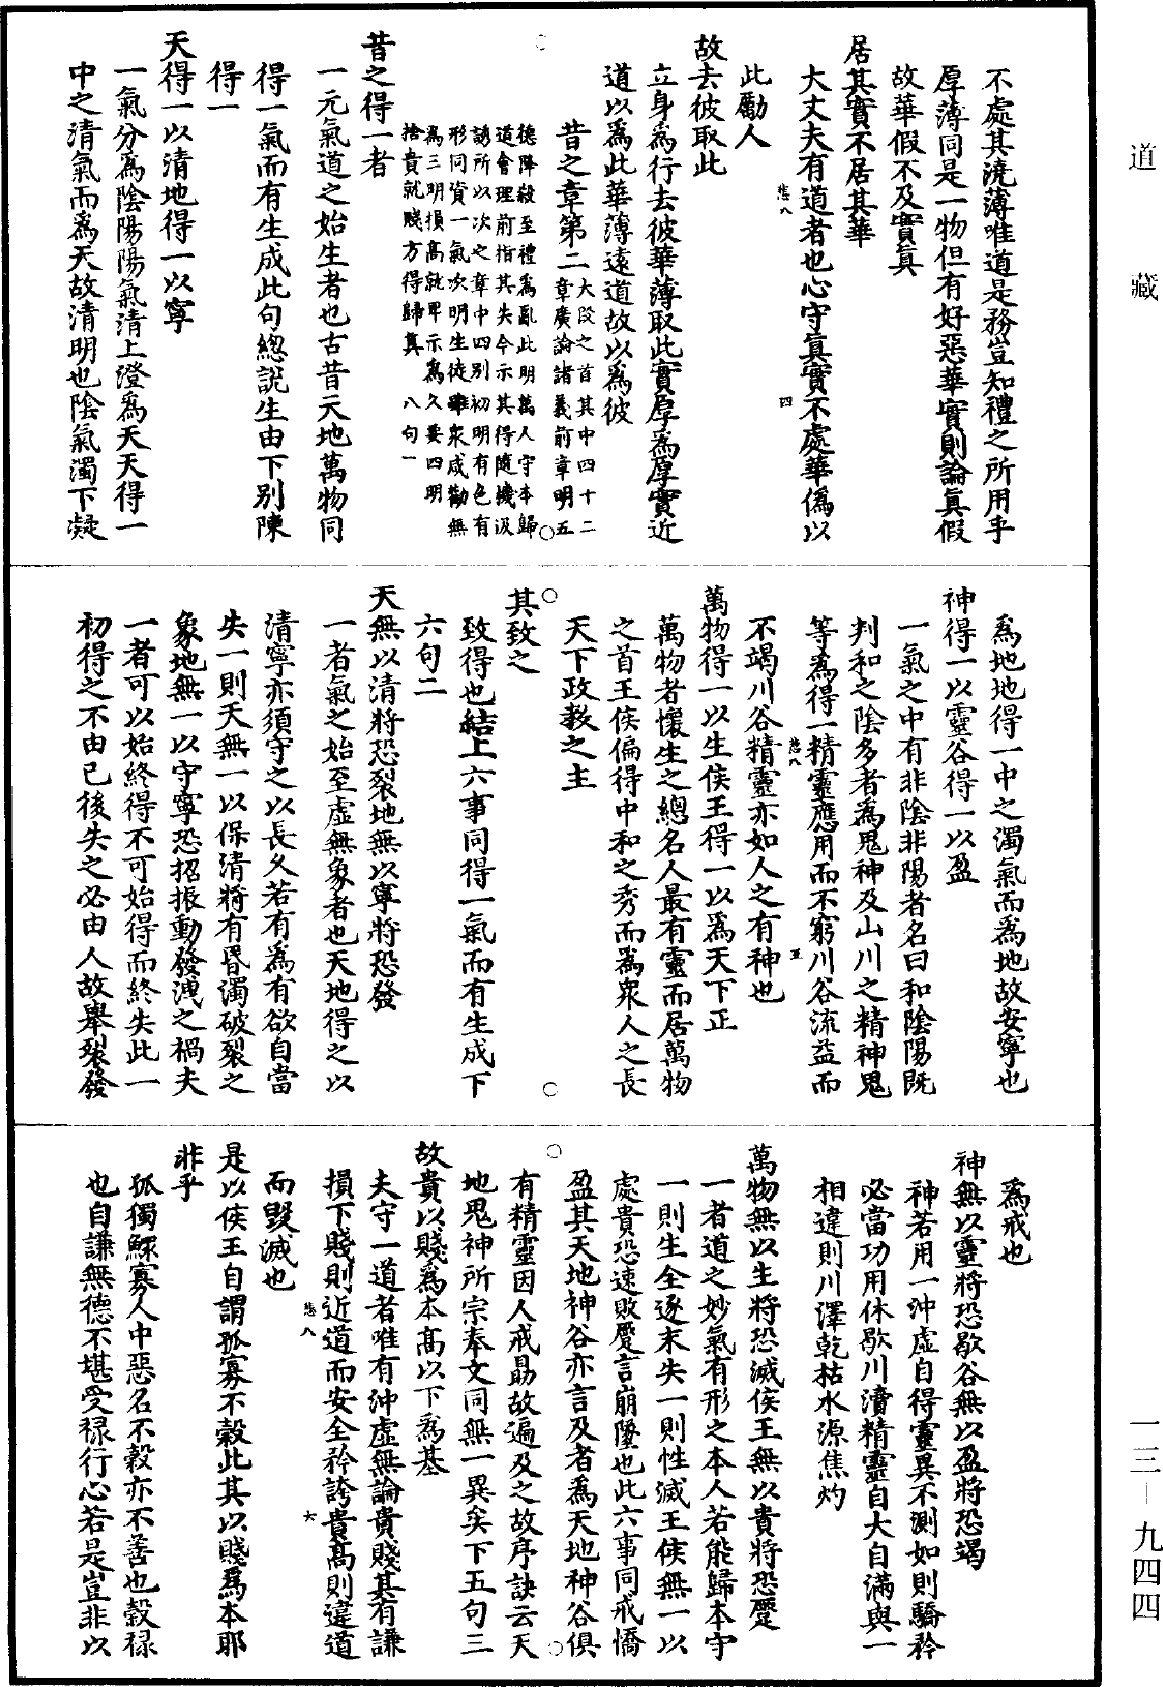 道藏
不處其澆薄唯道是務豈知禮之所用乎
厚薄同是一物但有好惡華實則論真假
故華假不及實真
居其實不居其華
大丈夫有道者也心守真實不處華僞以
悲八
四
此勵人
故去彼取此
立身爲行去彼華薄取此實厚爲厚實近
道以爲此華薄遠道故以爲彼
昔之章第二大段之首其中四十二
章廣論諸義前章明五
德降殺至禮爲亂此明萬人守本歸
道會理前指其失今示其得隨機汲
誘所以次之章中四別初明有色有
形同資一氣次明生徒雖衆咸勸無
爲三明損高就卑示爲久要四明
捨貴就賤方得歸真八句一
昔之得一者
一元氣道之始生者也古昔天地萬物同
得一氣而有生成此句總說生由下別陳
得一
天得一以清地得一以寧
一氣分爲陰陽陽氣清上澄爲天天得一
中之清氣而爲天故清明也陰氣濁下凝
爲地地得一中之濁氣而爲地故安寧也
神得一以靈谷得一以盈
一氣之中有非陰非陽者名曰和陰陽既
判和之陰多者爲鬼神及山川之精神鬼
等爲得一精靈應用而不窮川谷流益而
悲八
五
不竭川谷精靈亦如人之有神也
萬物得一以生侯王得一以爲天下正
萬物者懷生之總名人最有靈而居萬物
之首王侯偏得中和之秀而爲衆人之長
天下政教之主
其致之
致得也結上六事同得一氣而有生成下
六句二
天無以清將恐裂地無以寧將恐發
一者氣之始至虛無象者也天地得之以
清寧亦須守之以長久若有爲有欲自當
失一則天無一以保清將有昏濁破裂之
象地無一以守寧恐招振動發洩之禍夫
一者可以始終得不可始得而終失此一
初得之不由已後失之必由人故舉裂發
爲戒也
神無以靈將恐歇谷無以盈將恐竭
神若用一沖虛自得靈異不測如則驕矜
必當功用休歇川瀆精靈自大自滿與一
相違則川澤乾枯水源焦灼
萬物無以生將恐滅侯王無以貴將恐蹷
一者道之妙氣有形之本人若能歸本守
一則生全逐末失一則性滅王侯無一以
處貴恐速敗蹷言崩墜也此六事同戒憍
盈其天地神谷亦言及者爲天地神谷俱
有精靈因人戒勗故遍及之故序訣云天
地鬼神所宗奉文同無一異矣下五句三
故貴以賤爲本高以下爲基
夫守一道者唯有沖虛無論貴賤其有謙
損下賤則近道而安全矜誇貴高則違道
悲八
六
而毀滅也
是以侯王自謂孤寡不穀此其以賤爲本耶
非乎
孤獨鰥寡人中惡名不穀亦不善也穀祿
也自謙無德不堪受祿行心若是豈非以
一三—九四四